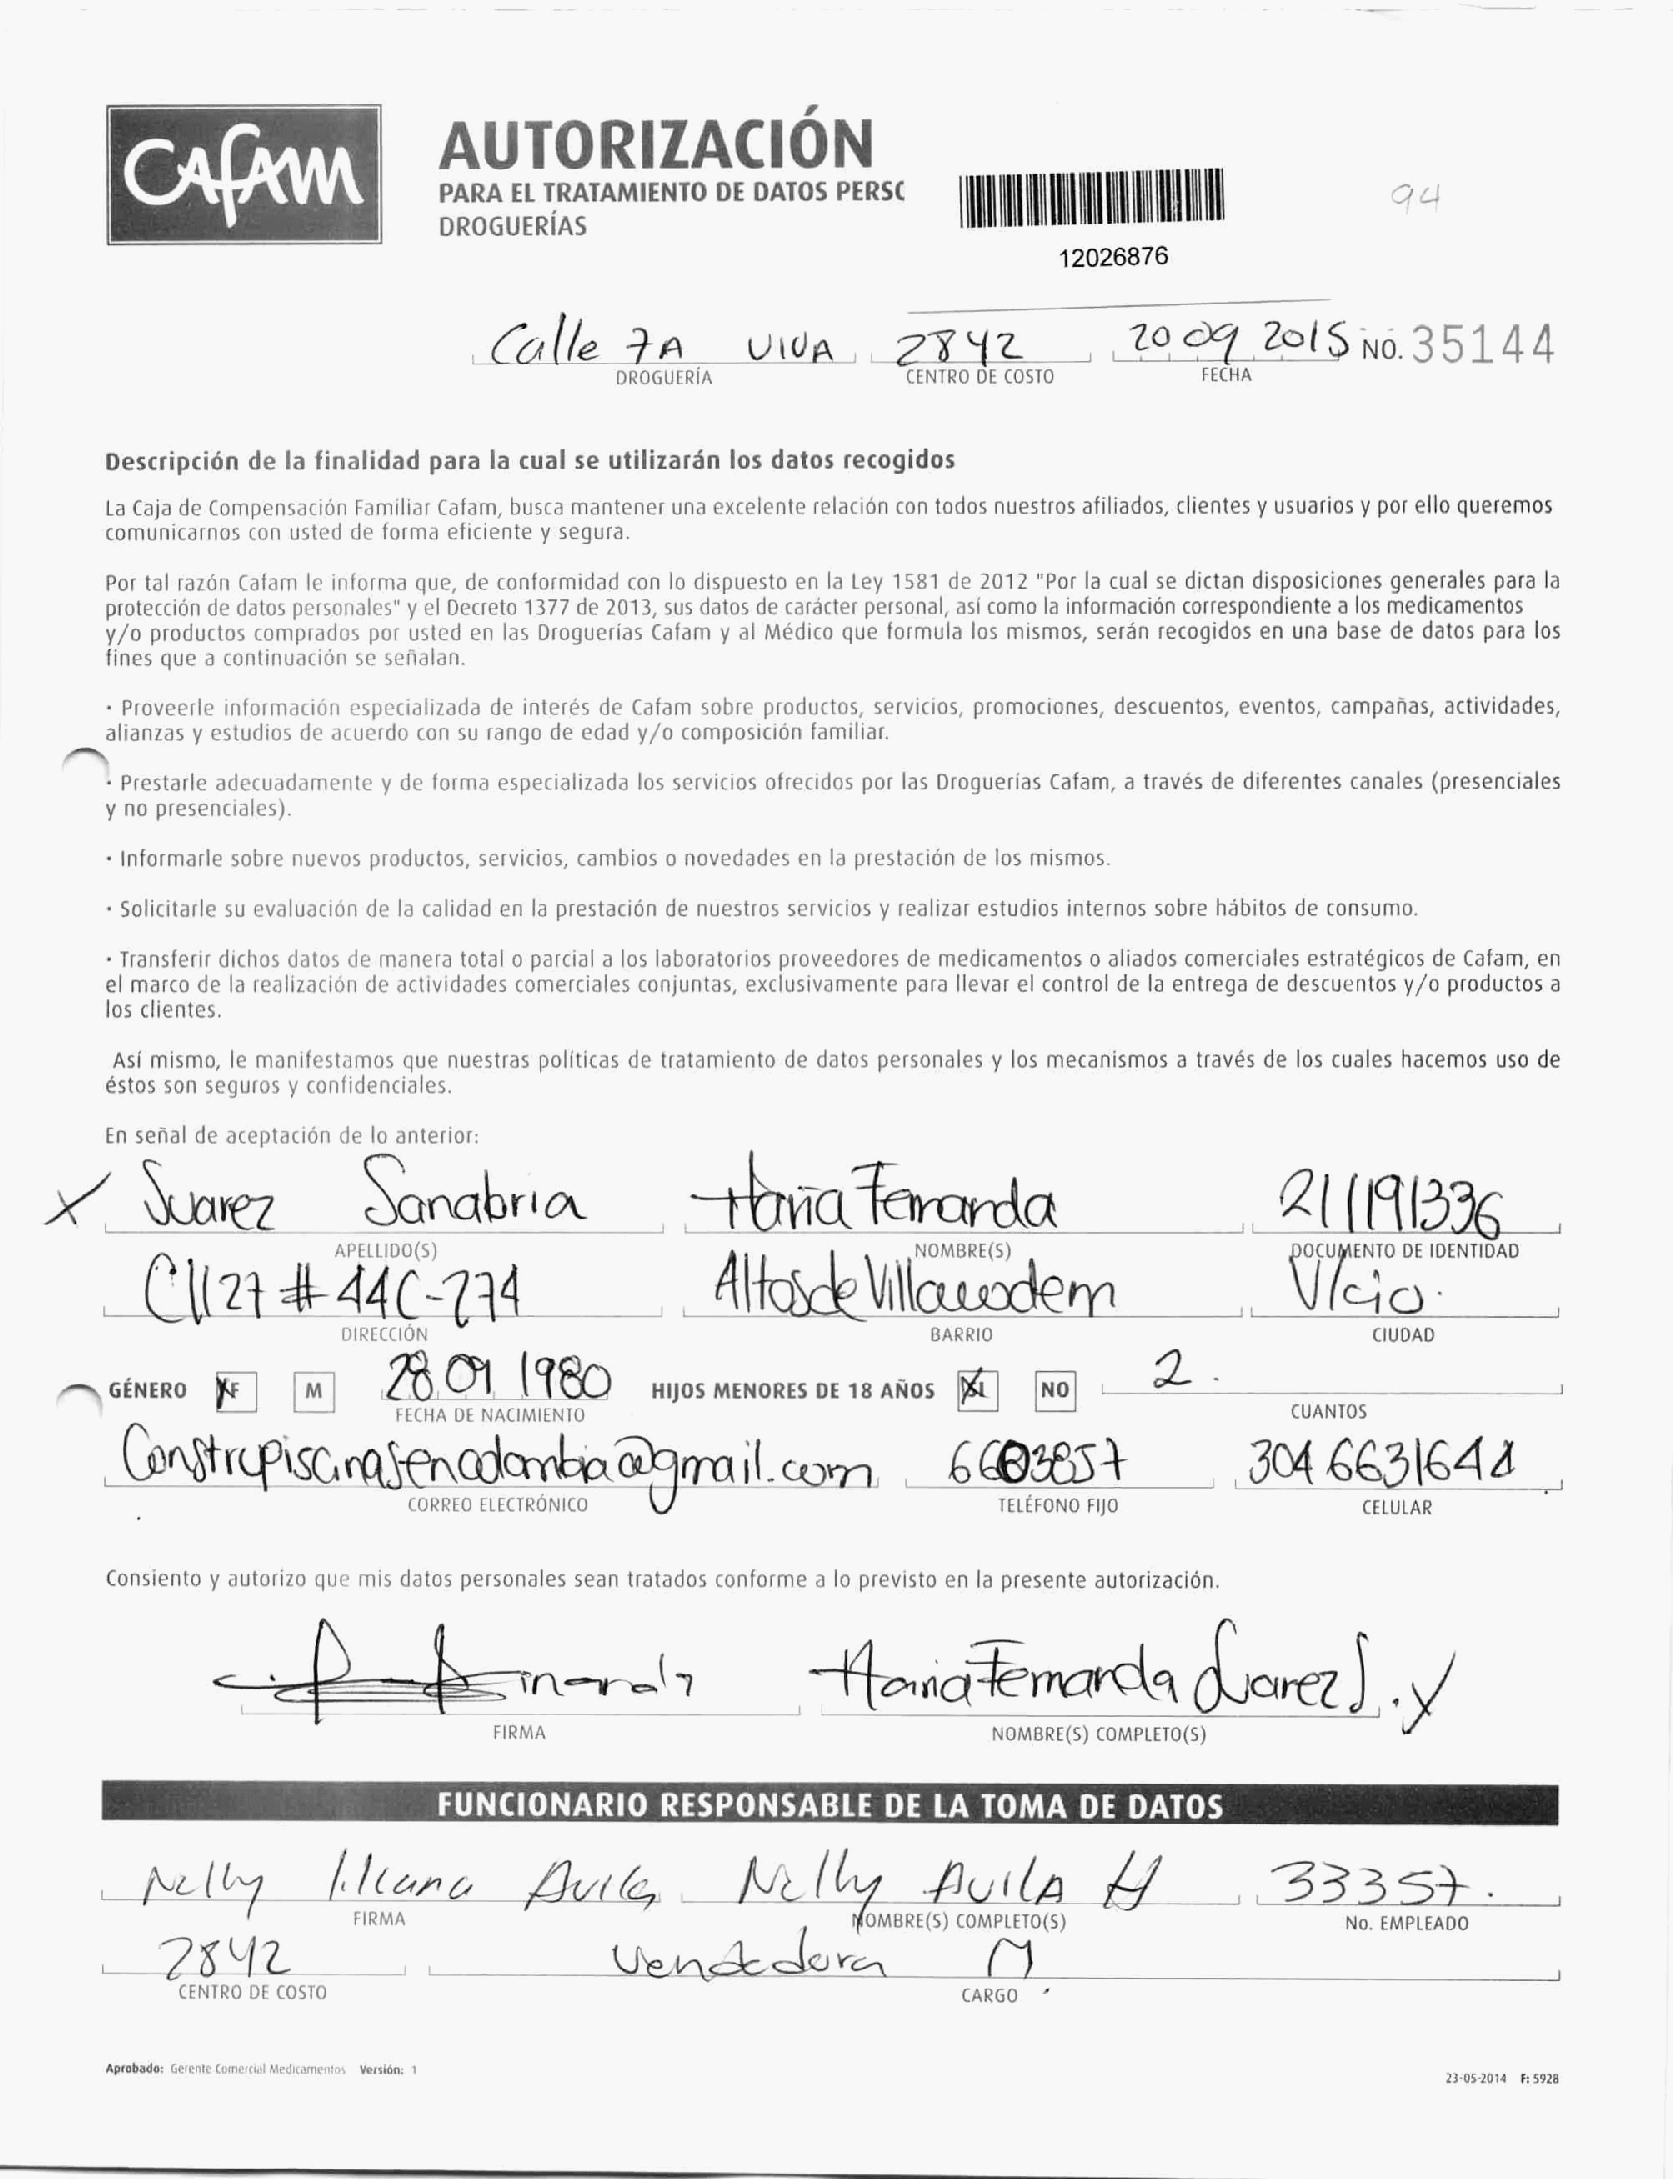 Cafam
AUTORIZACIÓN
PARA EL TRATAMIENTO DE DATOS PERSC
DROGUERÍAS
12026876
94
Calle 7A VIVA 2842 20 09 2015 NO. 35144
DROGUERÍA CENTRO DE COSTO FECHA
Descripción de la finalidad para la cual se utilizarán los datos recogidos
La Caja de Compensación Familiar Cafam, busca mantener una excelente relación con todos nuestros afiliados, clientes y usuarios y por ello queremos
comunicarnos con usted de forma eficiente y segura.
Por tal razón Cafam le informa que, de conformidad con lo dispuesto en la Ley 1581 de 2012 "Por la cual se dictan disposiciones generales para la
protección de datos personales" y el Decreto 1377 de 2013, sus datos de carácter personal, así como la información correspondiente a los medicamentos
y/o productos comprados por usted en las Droguerías Cafam y al Médico que formula los mismos, serán recogidos en una base de datos para los
fines que a continuación se señalan.
· Proveerle información especializada de interés de Cafam sobre productos, servicios, promociones, descuentos, eventos, campañas, actividades,
alianzas y estudios de acuerdo con su rango de edad y/o composición familiar.
· Prestarle adecuadamente y de forma especializada los servicios ofrecidos por las Droguerías Cafam, a través de diferentes canales (presenciales
y no presenciales).
· Informarle sobre nuevos productos, servicios, cambios o novedades en la prestación de los mismos.
· Solicitarle su evaluación de la calidad en la prestación de nuestros servicios y realizar estudios internos sobre hábitos de consumo.
· Transferir dichos datos de manera total o parcial a los laboratorios proveedores de medicamentos o aliados comerciales estratégicos de Cafam, en
el marco de la realización de actividades comerciales conjuntas, exclusivamente para llevar el control de la entrega de descuentos y/o productos a
los clientes.
Así mismo, le manifestamos que nuestras políticas de tratamiento de datos personales y los mecanismos a través de los cuales hacemos uso de
éstos son seguros y confidenciales.
En señal de aceptación de lo anterior:
X Suarez Sanabria Maria Fernanda 21191336
APELLIDO(S) NOMBRE(S) DOCUMENTO DE IDENTIDAD
Cll 27 # 44C-274 Altos de V/cio.
DIRECCIÓN BARRIO CIUDAD
GÉNERO F M 28 09 1980 HIJOS MENORES DE 18 AÑOS SI NO 2.
FECHA DE NACIMIENTO CUANTOS
Construpiscinasencolombia@gmail.com 6603857 304 6631644
CORREO ELECTRÓNICO TELÉFONO FIJO CELULAR
Consiento y autorizo que mis datos personales sean tratados conforme a lo previsto en la presente autorización.
Maria Fernanda Suarez S. X
FIRMA NOMBRE(S) COMPLETO(S)
FUNCIONARIO RESPONSABLE DE LA TOMA DE DATOS
Nelly liliana Avila Nelly AVILA H 33357.
FIRMA NOMBRE(S) COMPLETO(S) No. EMPLEADO
2842 Vendedora M
CENTRO DE COSTO CARGO
Aprobado: Gerente Comercial Medicamentos Versión: 1
23-05-2014 F: 5928